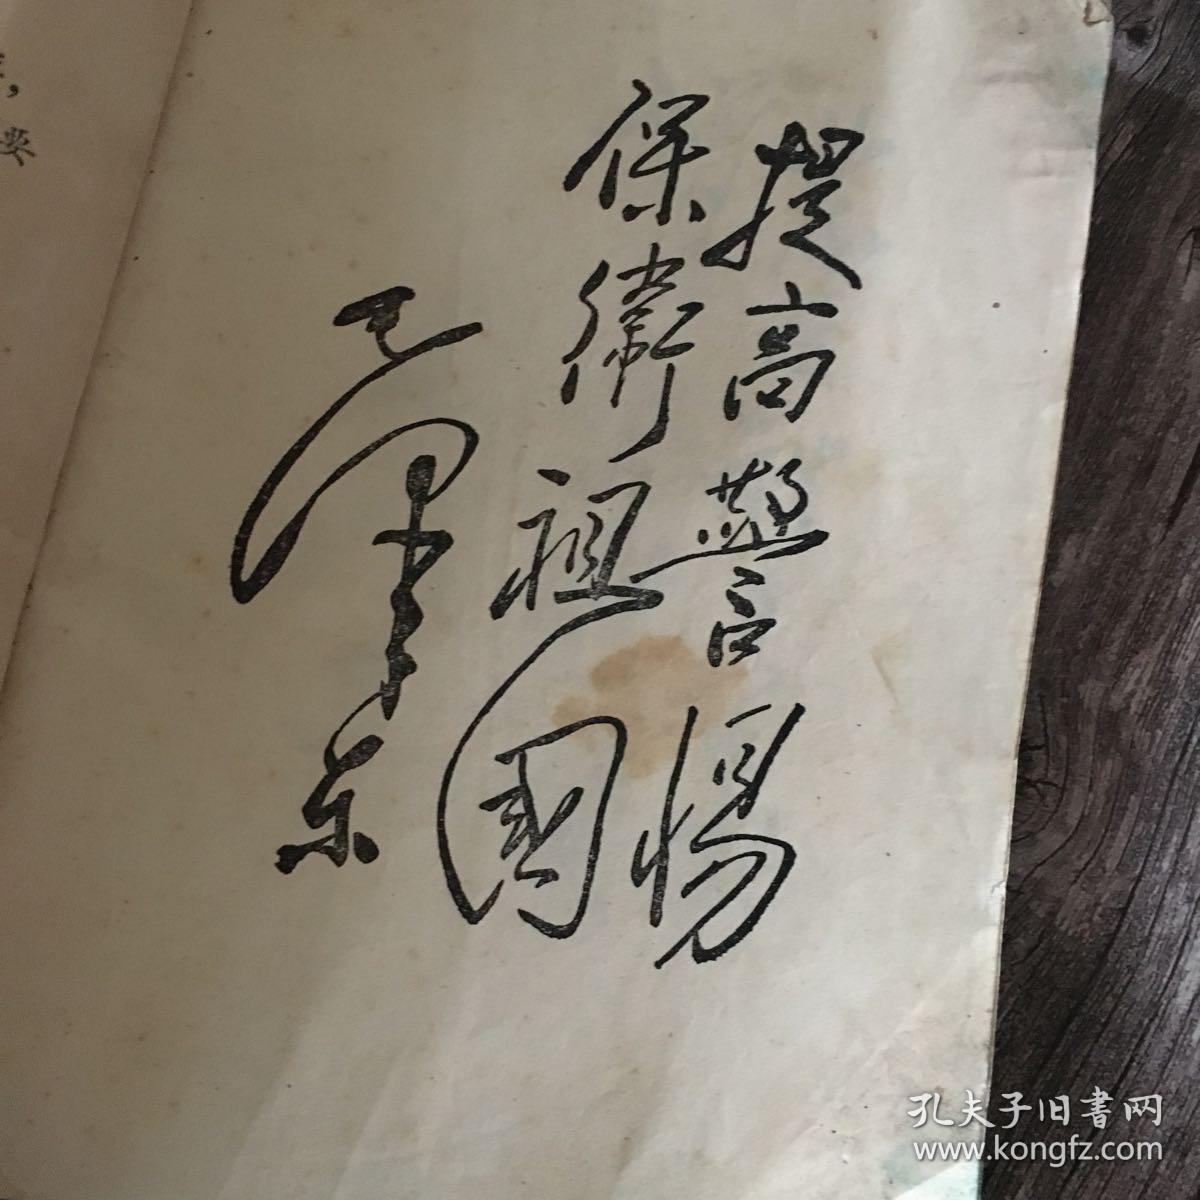 提高警惕
保衛祖國
毛澤东
要
孔夫子旧書网
www.kongfz.com